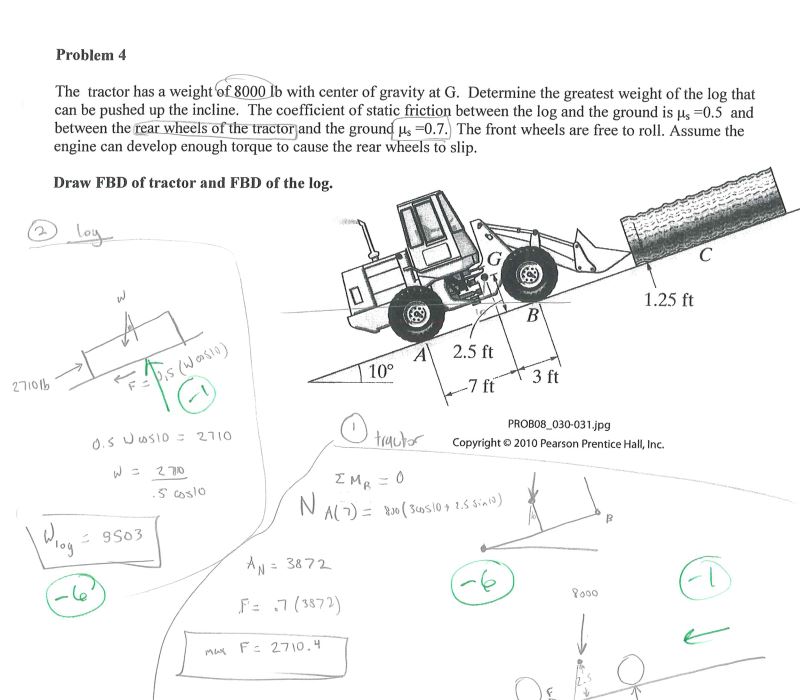 Problem 4
The tractor has a weight of 8000 lb with center of gravity at G. Determine the greatest weight of the log that
can be pushed up the incline. The coefficient of static friction between the log and the ground is μs =0.5 and
between the rear wheels of the tractor and the ground μs =0.7. The front wheels are free to roll. Assume the
engine can develop enough torque to cause the rear wheels to slip.
Draw FBD of tractor and FBD of the log.
② log
G
C
1.25 ft
B
A
2.5 ft
10°
3 ft
7 ft
W
2710lb
F = 0.5 (W cos10)
-1
0.5 W cos10 = 2710
W = 2710
.5 cos10
Wlog = 9503
-6
PROB08_030-031.jpg
Copyright © 2010 Pearson Prentice Hall, Inc.
① tractor
Σ MB = 0
N A(7) = 800(3cos10 + 2.5 sin10)
B
AN = 3872
F = .7 (3872)
max F = 2710.4
-6
-1
8000
2.5
F